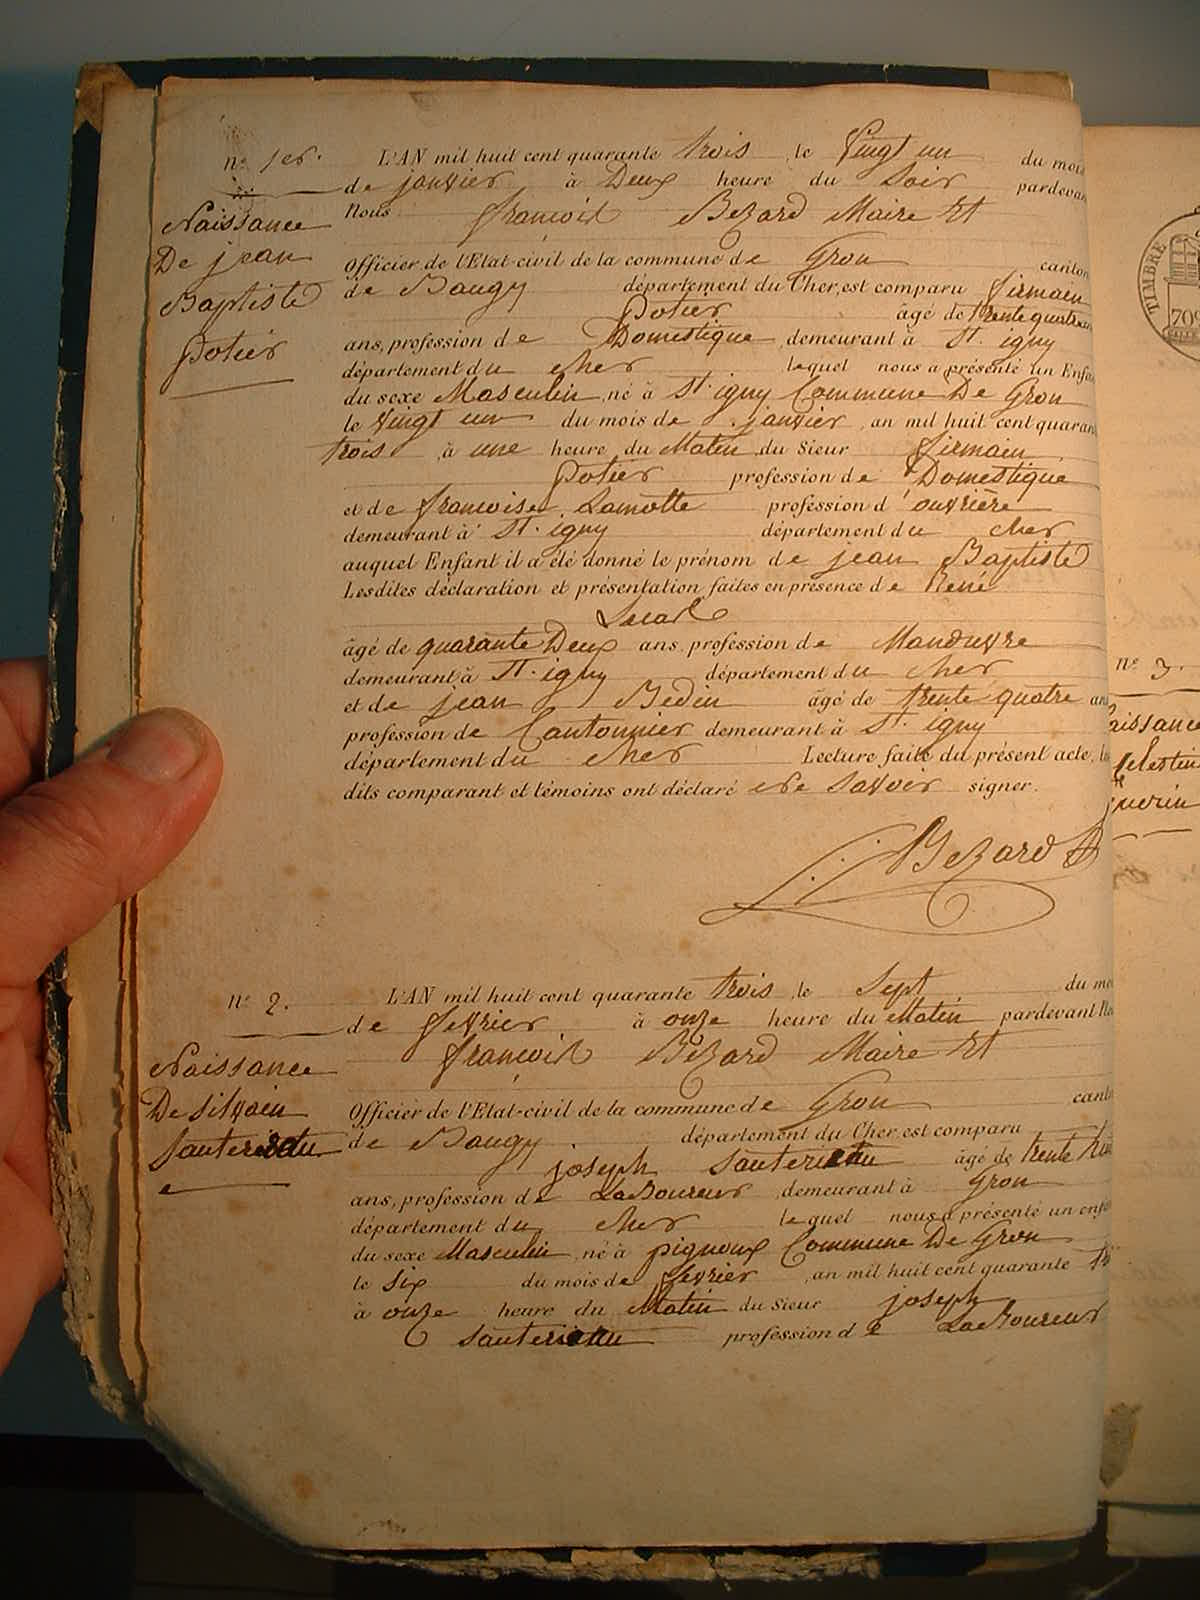 nº 1er.
Naissance
De jean
Baptiste
Potier
L'AN mil huit cent quarante trois, le Vingt un du mois
de janvier à Deux heure du Soir pardevan
Nous francois Bezard Maire Et
Officier de l'Etat-civil de la commune de Gron canton
de Baugy département du Cher, est comparu firmain
Potier âgé de trente quatre
ans, profession de Domestique, demeurant à St. igny
département du cher lequel nous a présenté un Enfa
du sexe Masculin, né à St. igny Commune De Gron
le Vingt un du mois de janvier, an mil huit cent quaran
trois, à une heure du Matin du Sieur firmain
Potier profession de Domestique
et de francoise Lamotte profession d'ouvrière
demeurant à St. igny département du cher
auquel Enfant il a été donné le prénom de jean Baptiste
Lesdites déclaration et présentation faites en présence de René
âgé de quarante Deux ans, profession de Manouvre
demeurant à St. igny département du cher
et de jean Bedin âgé de trente quatre an
profession de Cantonnier demeurant à St. igny
département du cher Lecture faite du présent acte, les
dits comparant et témoins ont déclaré ne savoir signer.
Bezard
nº 2.
Naissance
De silvain
Sauterieau
L'AN mil huit cent quarante trois, le Sept du mo
de fevrier à onze heure du Matin pardevant No
francois Bezard Maire Et
Officier de l'Etat-civil de la commune de Gron cant
de Baugy département du Cher, est comparu
joseph Sauterieau âgé de trente
ans, profession de Laboureur, demeurant à Gron
département du cher lequel nous a présenté un enfa
du sexe Masculin, né à pignoux Commune De Gron
le six du mois de fevrier, an mil huit cent quarante
à onze heure du Matin du Sieur joseph
Sauterieau profession de Laboureur
TIMBRE
709
nº 3.
aissance
Celestin